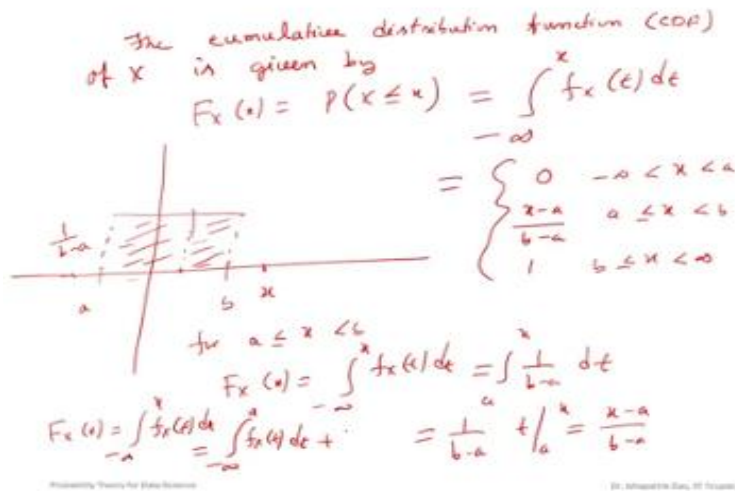 The cumulative distribution function (CDF)
of X is given by
Fx (x) = P(X ≤ x) = ∫_{-∞}^{x} fx (t) dt
= { 0 -∞ < x < a
x-a/b-a a ≤ x < b
1 b ≤ x < ∞
1/b-a
a b x
for a ≤ x < b
Fx (x) = ∫_{-∞}^{x} fx(t) dt = ∫_{a}^{x} 1/b-a dt
= 1/b-a t|_{a}^{x} = x-a/b-a
Fx (x) = ∫_{-∞}^{x} fx(t) dt = ∫_{-∞}^{a} fx(t) dt +
Probability Theory for Data Science